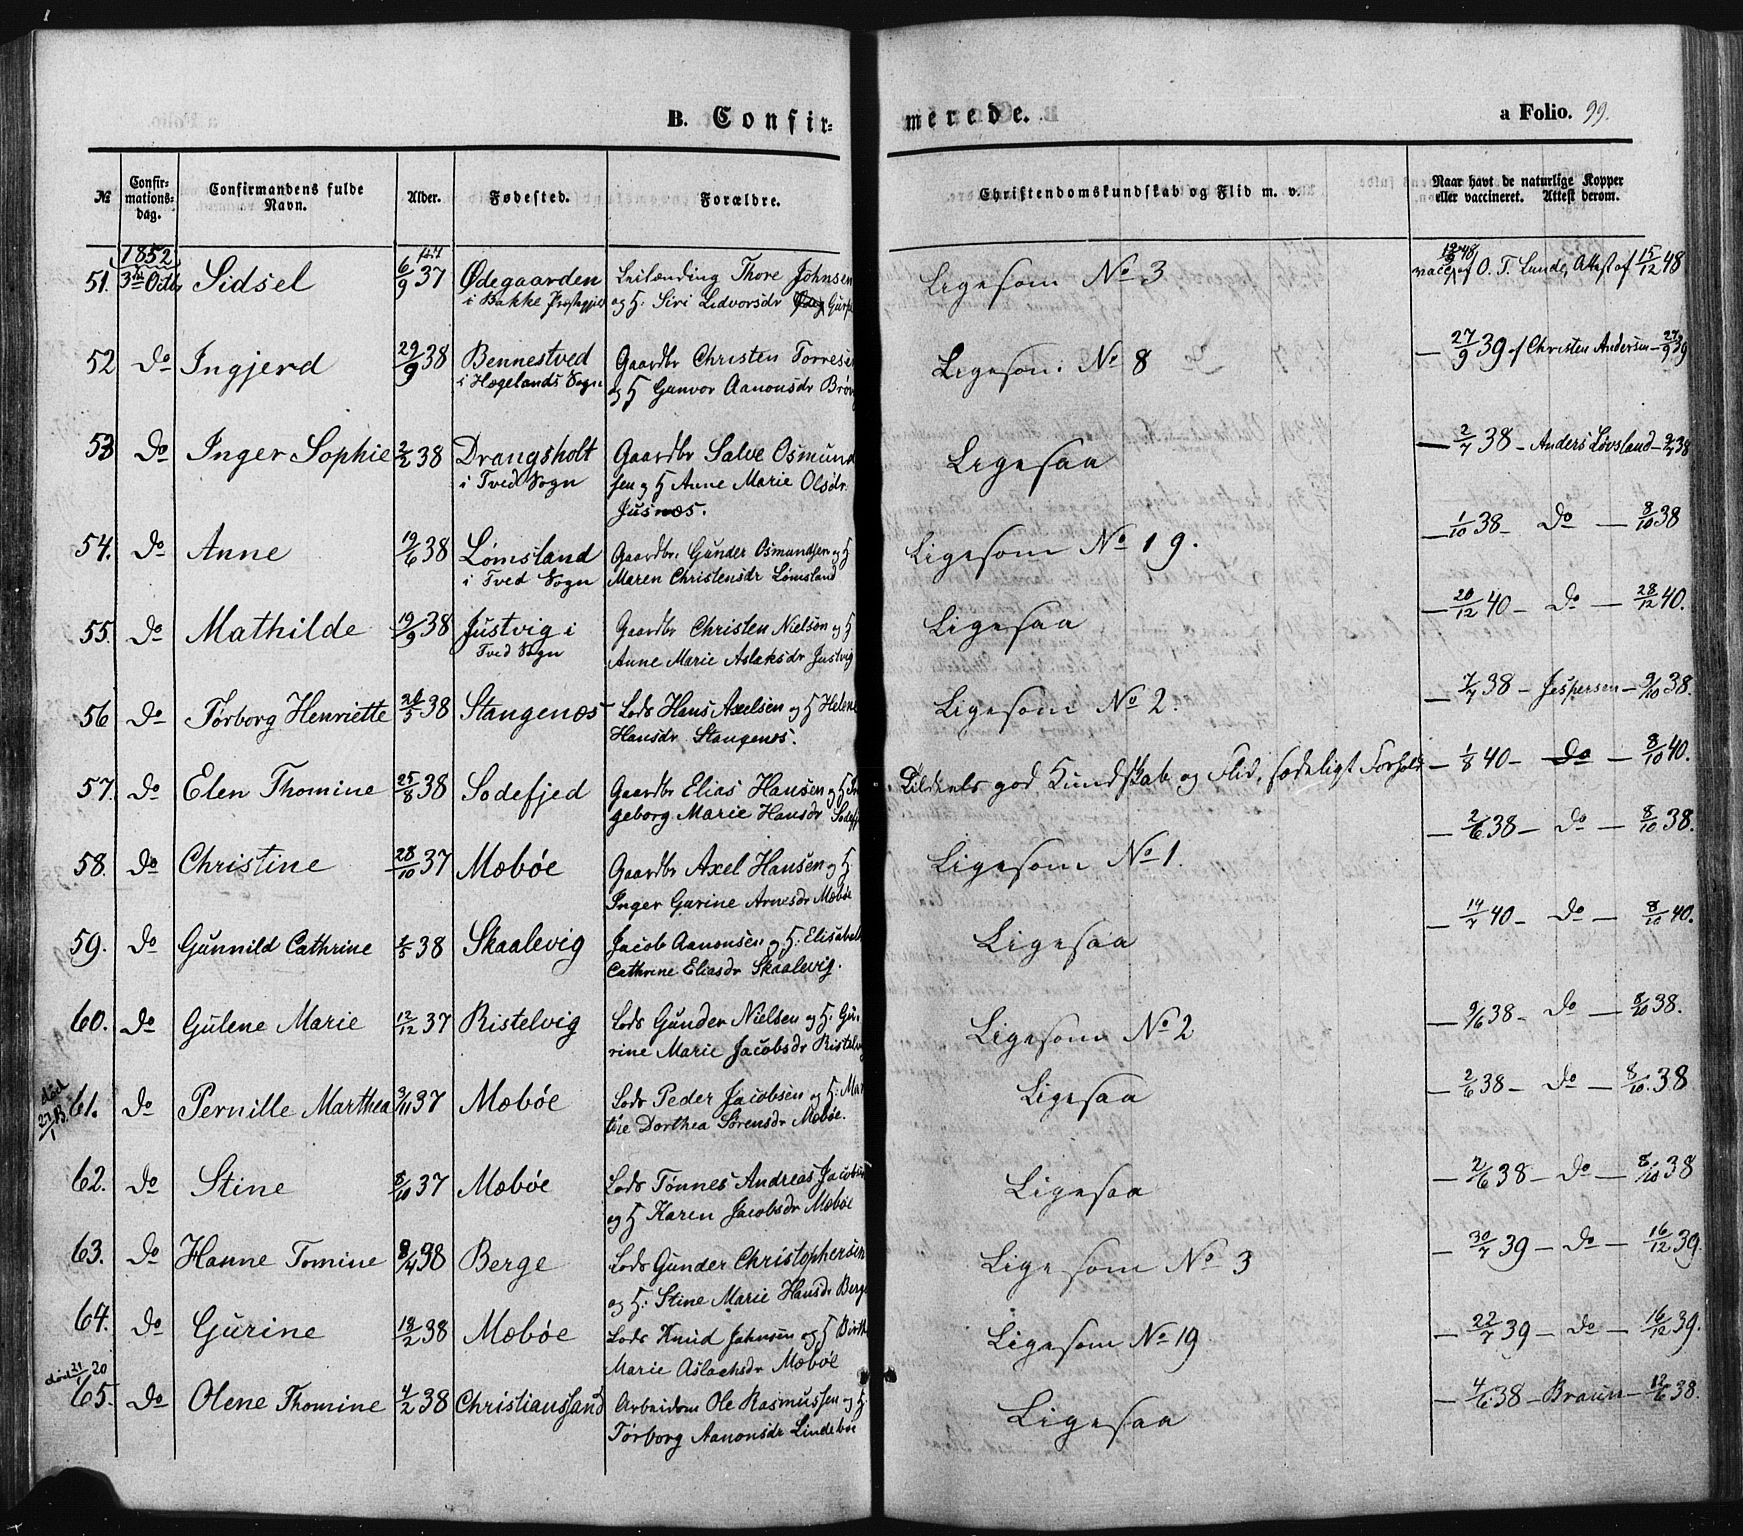 B. Confir-
merede.
a Folio. 99.
№
Confirmationsdag.
Confirmandens fulde Navn.
Alder.
Fødested.
Forældre.
Christendomskundskab og Flid m. v.
Naar havt de naturlige Kopper eller vaccineret. Attest derom.
1852
51. 3die Octbr Sidsel 6/9 37 Ødegaarden Leilænding Thore Johnsen Ligesom No 3 vacc af O. T. Lunde, Attest af 15/12 48
i Bakke Præstegjeld og H. Siri Ledvorsdr
52 Do Ingjerd 29/9 38 Bennestved Gaardbr Christen Torresen Ligesom No 8 — 27/9 39 af Christen Andersen — 27/9 39
i Hægelands Sogn og H Gunvor Aanonsdr
53 Do Inger Sophie 2/2 38 Drangsholt Gaardbr Salve Osmund Ligesaa — 2/7 38 — Anders Løvsland — 9/7 38
i Tved Sogn sen og H Anne Marie Olsdr.
Jusnæs.
54. Do Anne 19/6 38 Lømsland Gaardbr. Gunder Osmundsen og H Ligesom No 19. — 1/10 38 — Do — 8/10 38
i Tved Sogn Maren Christensdr Lømsland
55. Do Mathilde 19/9 38 Justvig i Gaardbr Christen Nielsen og H Ligesaa — 20/12 40 — Do — 28/12 40.
Tved Sogn Anne Marie Aslaksdr Justvig
56 Do Tørborg Henriette /5 38 Stangenæs Lods Hans Axelsen og H Helene Ligesom No 2. — 7/7 38 — Jespersen — 9/10 38.
Hansdr. Stangenæs.
57. Do Elen Thomine 25/8 38 Sodefjed Gaardbr Elias Hansen og H In Tildeels god Kundskab og Flid, sædeligt Forhold — 1/8 40 — Do — 8/10 40.
geborg Marie Hansdr Sodefj
58. Do Christine 28/10 37 Mæbøe Gaardbr Axel Hansen og H. Ligesom No 1. — 2/6 38 — Do — 8/10 38.
Inger Gurine Arnesdr Mæbøe
59. Do Gunnild Cathrine /5 38 Skaalevig Jacob Aanonsen og H. Elisabeth Ligesaa — 14/7 40 — Do — 8/10 40.
Cathrine Eliasdr Skaalevig.
60. Do Gulene Marie 12/12 37 Ristelvig Lods Gunder Nielsen og H. Gu- Ligesom No 2 — 9/6 38 — Do — 8/10 38.
rine Marie Jacobsdr Ristelvig
død
27/1
61. Do Pernille Marthea 3/11 37 Mæbøe Lods Peder Jacobsen og H. Mar Ligesaa — 2/6 38 — Do — 8/10. 38
the Dorthea Sørensdr Mæbøe.
62. Do Stine 8/10 37 Mæbøe Lods Tønnes Andreas Jacobsen Ligesaa — 2/6 38 — Do — 8/10 38
og H Karen Jacobsdr Mæbøe
63. Do Hanne Tomine 8/4 38 Berge Lods Gunder Christophersen Ligesom No 3 — 30/7 39 — Do — 16/12 39.
og H. Stine Marie Hansdr Berge
64. Do Gurine 18/2 38 Mæbøe Lods Knud Johnsen og H Birthe Ligesom No 19 — 22/7 39 — Do — 16/12 39.
Marie Aslachsdr Mæbøe
død 21/1 20
65. Do Olene Thomine 4/2 38 Christianssand Arbeidsm Ole Rasmussen og H. Ligesaa — 4/6 38 — Braun — 12/6 38.
Tørborg Aanonsdr Lindebøe